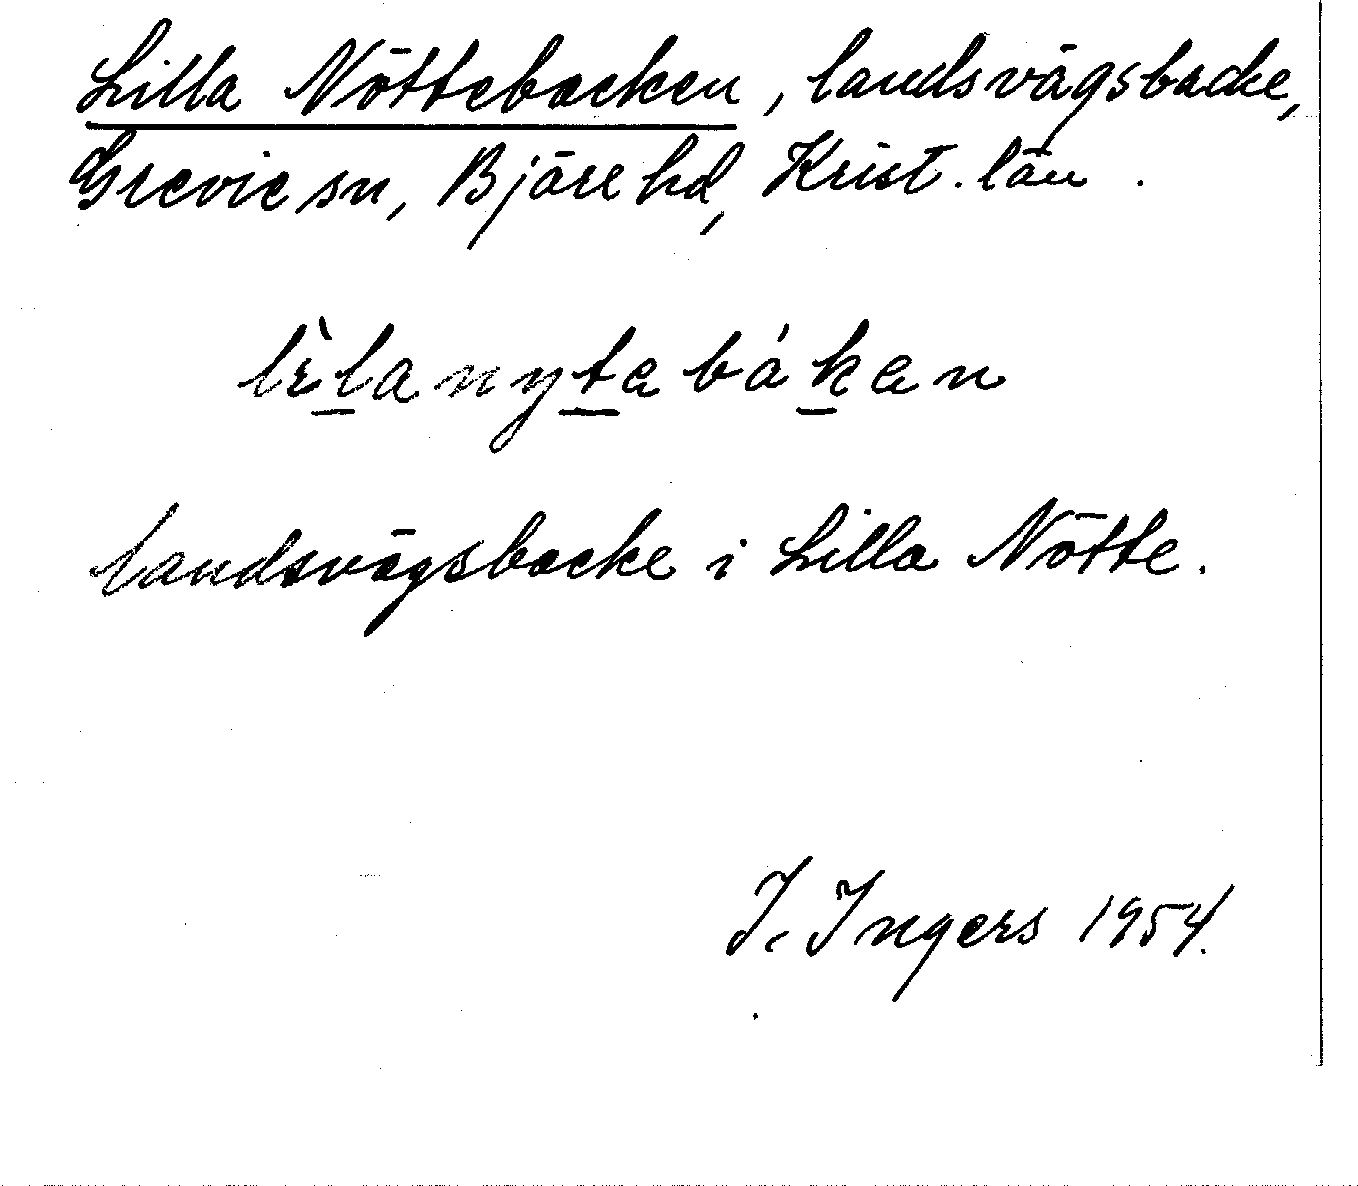 Lilla Nöttebacken, landsvägsbacke,
Grevie sn, Bjäre hd, Krist. län.
lèlanytabákan
landsvägsbacke i Lilla Nötte.
I. Ingers 1954.